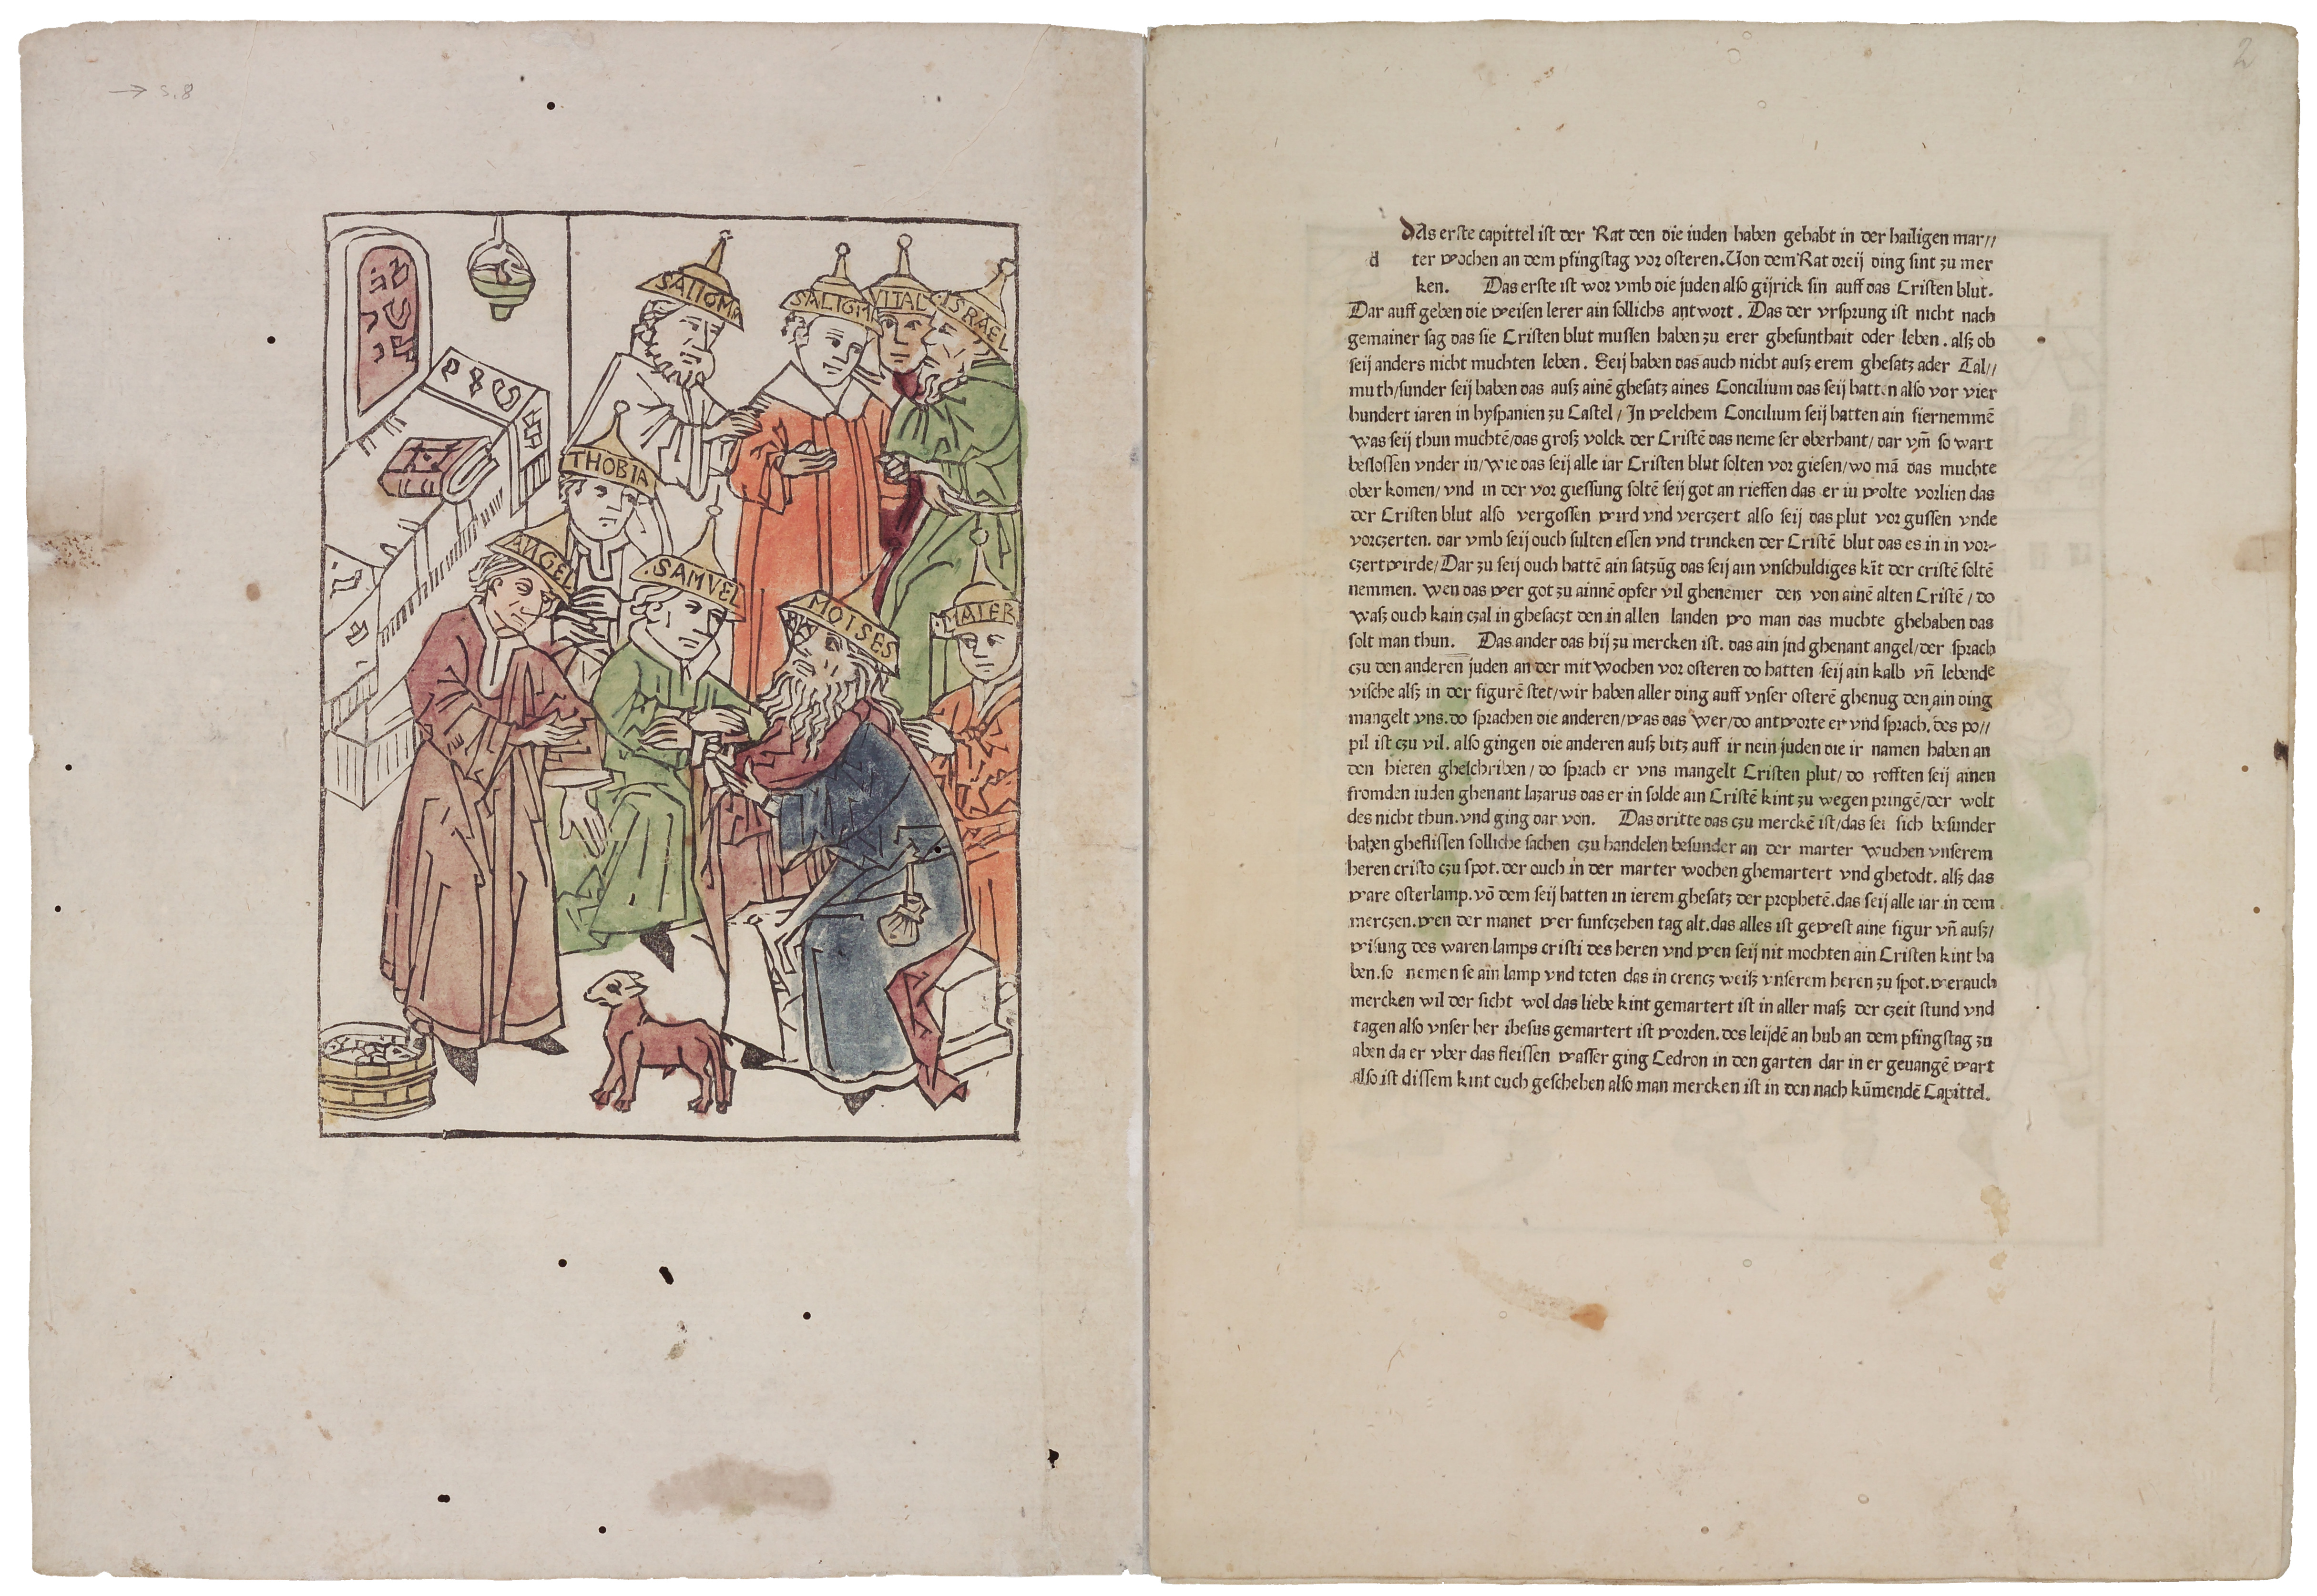 → s. 8
SALIGMA
SALIGM
VITAL
ISRAEL
THOBIA
ANGEL
SAMVEL
MOISES
MAIER
2
dAs erste capittel ist der Rat den die iuden haben gehabt in der hailigen mar//
d ter wochen an dem pfingstag vor osteren. Von dem Rat dreij ding sint zu mer
ken. Das erste ist wor vmb die juden also gijrick sin auff das Cristen blut.
Dar auff geben die weisen lerer ain sollichs antwort. Das der vrsprung ist nicht nach
gemainer sag das sie Cristen blut mussen haben zu erer ghesunthait oder leben. alsz ob
seij anders nicht muchten leben. Seij haben das auch nicht ausz erem ghesatz ader Tal//
muth/sunder seij haben das ausz ainē ghesatz aines Concilium das seij hatten also vor vier
hundert iaren in hyspanien zu Castel/ In welchem Concilium seij hatten ain fiernemmē
was seij thun muchtē/das grosz volck der Cristē das neme ser oberhant/ dar vm̄ so wart
beslossen vnder in/wie das seij alle iar Cristen blut solten vor giesen/wo mā das muchte
ober komen/ vnd in der vor giessung soltē seij got an rieffen das er iu wolte vorlien das
der Cristen blut also vergossen wird vnd verczert also seij das plut vor gussen vnde
vorczerten. dar vmb seij ouch sulten essen vnd trincken der Cristē blut das es in in vor-
czert wirde/Dar zu seij ouch hattē ain satzūg das seij ain vnschuldiges kīt der cristē soltē
nemmen. wen das wer got zu ainnē opfer vil ghenemer den von ainē alten Cristē/ do
wasz ouch kain czal in ghesaczt den in allen landen wo man das muchte ghehaben das
solt man thun. Das ander das hij zu mercken ist. das ain jnd ghenant angel/der sprach
czu den anderen juden an der mit wochen vor osteren do hatten seij ain kalb vn̄ lebende
vische alsz in der figurē stet/wir haben aller ding auff vnser osterē ghenug den ain ding
mangelt vns. do sprachen die anderen/was das wer/do antworte er vnd sprach. des po//
pil ist czu vil. also gingen die anderen ausz bitz auff ir nein juden die ir namen haben an
den hieten gheschriben/ do sprach er vns mangelt Cristen plut/ do rofften seij ainen
fromden iuden ghenant lazarus das er in solde ain Cristē kint zu wegen pringē/der wolt
des nicht thun. vnd ging dar von. Das dritte das czu merckē ist/das sei sich besunder
haben gheflissen solliche sachen czu handelen besunder an der marter wuchen vnserem
heren cristo czu spot. der ouch in der marter wochen ghemartert vnd ghetodt. alsz das
ware osterlamp. vō dem seij hatten in ierem ghesatz der prophetē. das seij alle iar in dem
merczen. wen der manet wer funfczehen tag alt. das alles ist gewest aine figur vn̄ ausz/
wisung des waren lamps cristi des heren vnd wen seij nit mochten ain Cristen kint ha
ben. so nemen se ain lamp vnd toten das in crencz weisz vnserem heren zu spot. wer auch
mercken wil der sicht wol das liebe kint gemartert ist in aller masz der czeit stund vnd
tagen also vnser her ihesus gemartert ist worden. des leijdē an hub an dem pfingstag zu
aben da er vber das fleissen wasser ging Cedron in den garten dar in er geuangē wart
also ist dissem kint ouch geschehen also man mercken ist in den nach kūmendē Capittel.